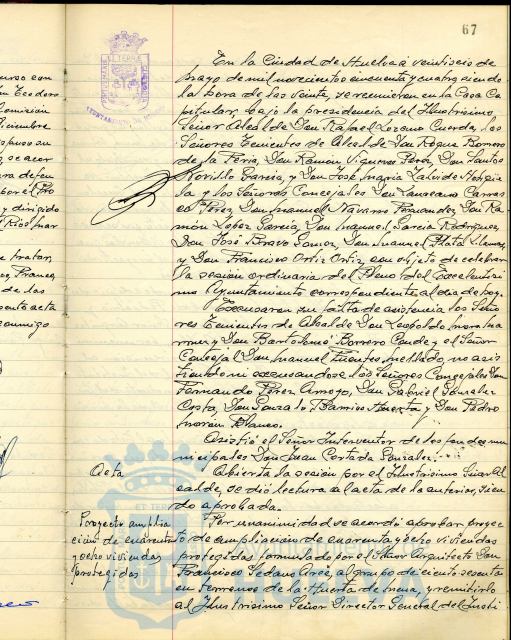 67
En la Ciudad de Huelva á veintiseis de
mayo de mil novecientos cincuenta y cuatro, siendo
la hora de las veinte, se reunieron en la Casa Ca
pitular, bajo la presidencia del Ilustrisimo
Señor Alcalde Don Rafael Lozano Cuerda, los
Señores Tenientes de Alcalde Don Roque Borrero
de la Feria, Don Ramón Vigueras Perez, Don Santos
García, y Don José Maria
la y los Señores Concejales Don Laureano Carras
co Perez, Don Manuel Navarro Fernandez, Don Ra
món Lopez García, Don Manuel García Rodriguez,
Don José Bravo Gomez, Don Juan
y Don Francisco Ortiz Ortiz, con objeto de celebrar
la sesión ordinaria del Pleno del Excelentisi
mo Ayuntamiento correspondiente al dia de hoy.
Excusaron su falta de asistencia los Seño
res Tenientes de Alcalde Don Leopoldo
y Don Bartolomé Borrero Conde y el Señor
Concejal Don Manuel Fuentes no asis
tiendo ni excusandose los Señores Concejales Don
Fernando Perez Arroyo, Don Gabriel Gonzalez
Costa, Don Gonzalo Barrios Huerta y Don Pedro
Morán Blanco.
Asistió el Señor Interventor de los fondos mu
nicipales Don Juan Cortada Gonzalez.
Acta
Abierta la sesión por el Ilustrisimo Señor Al
calde, se dió lectura al acta de la anterior, sien
do aprobada.
Proyecto amplia
ción de cuarenta
y ocho viviendas
protegidas
Por unanimidad se acordó aprobar proyec
to de ampliación de cuarenta y ocho viviendas
protegidas formulado por el Señor Arquitecto Don
Francisco Sedano Arce, al grupo de ciento sesenta
en terrenos de la Huerta de Mena, y remitirlo
al Ilustrisimo Señor Director General del Insti